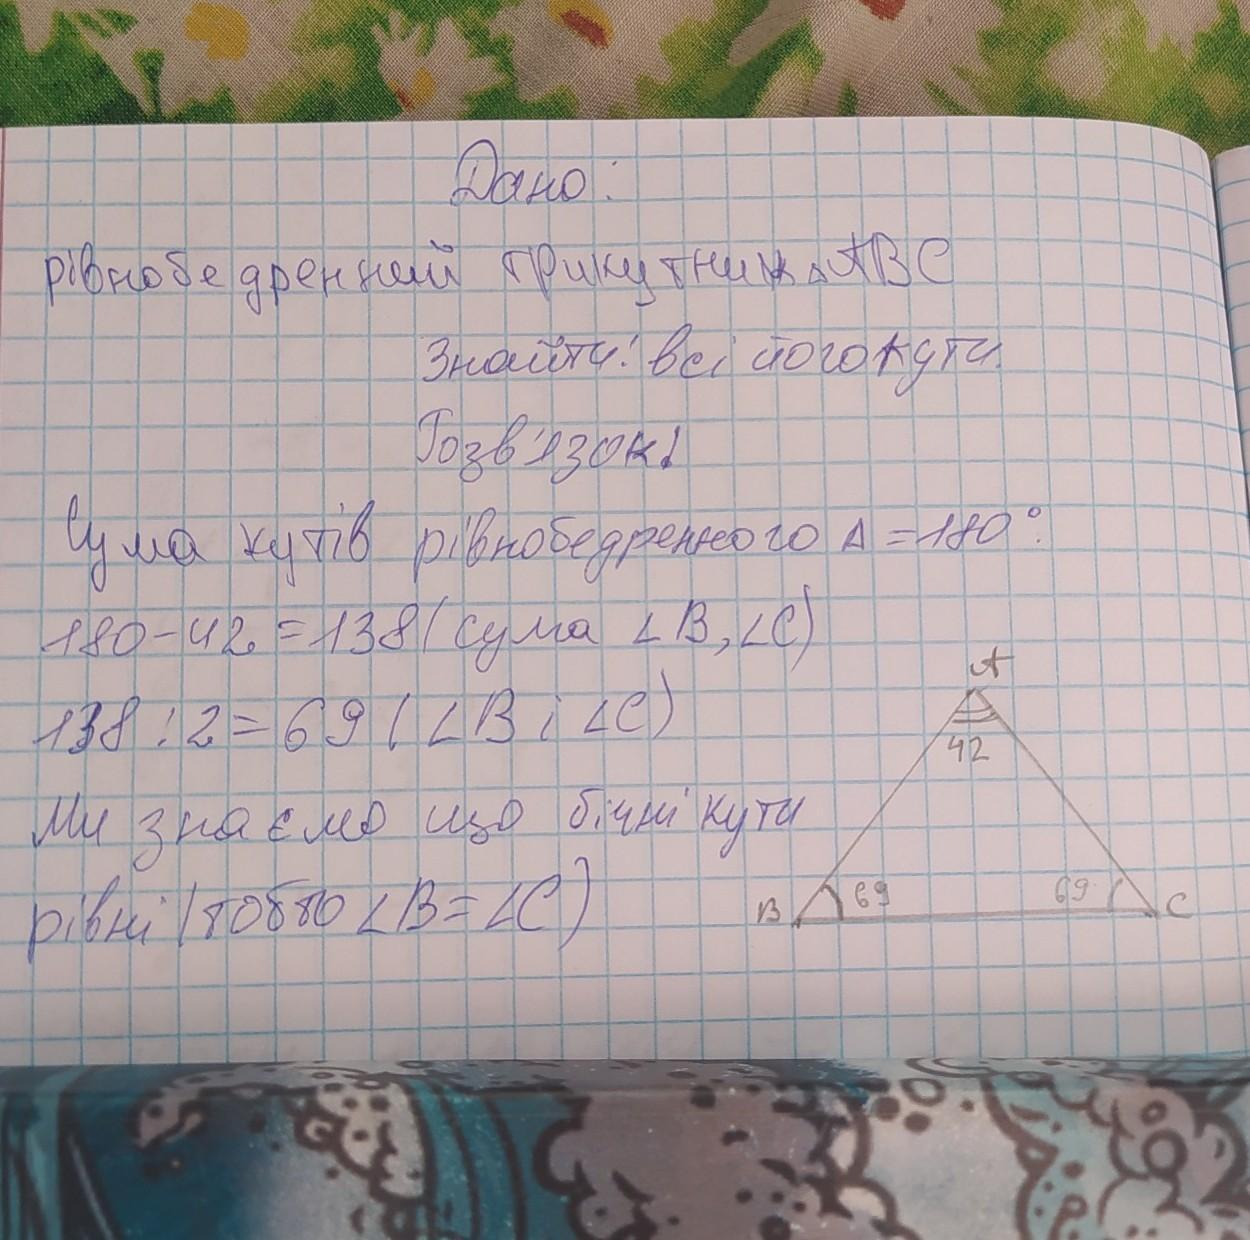 Дано:
рівнобедренний трикутник △ABC
Знайти: всі його кути.
Розв'язок:
Сума кутів рівнобедренного △ = 180°:
180-42=138 (сума ∠B, ∠C)
138:2=69 (∠B і ∠C)
Ми знаємо що бічні кути
рівні (тобто ∠B=∠C)
A
42
B 69 69 C